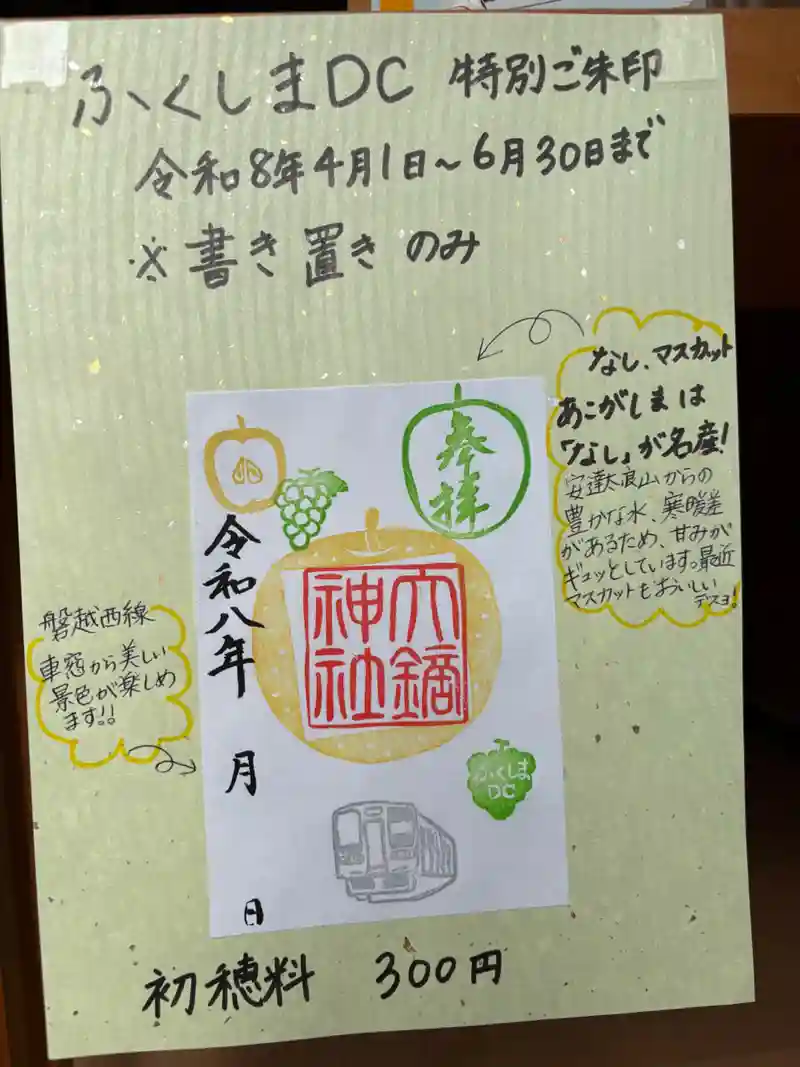 ふくしまDC 特別ご朱印
令和8年4月1日～6月30日まで
※書き置きのみ
なし、マスカット
あこがしまは
「なし」が名産!
安達太良山からの
豊かな水、寒暖差
があるため、甘みが
ギュッとしています。最近
マスカットもおいしい
デスョ!
奉拝
令和八年 月 日
大鏑
神社
磐越西線
車窓から美しい
景色が楽しめ
ます!!
ふくしま
DC
初穂料 300円